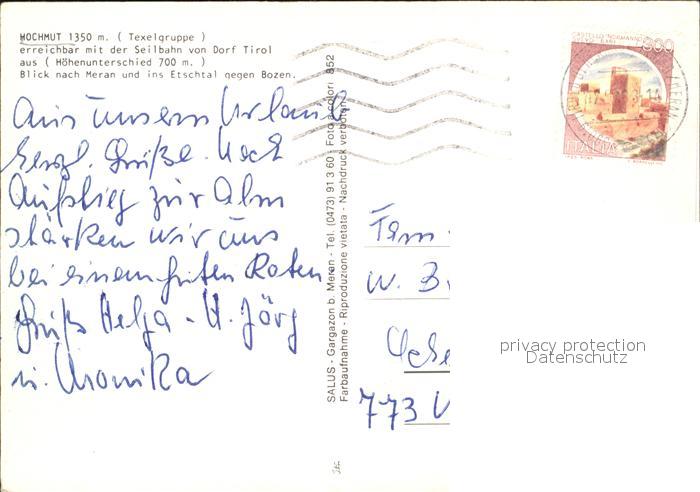 HOCHMUT 1350 m. ( Texelgruppe )
erreichbar mit der Seilbahn von Dorf Tirol
aus ( Höhenunterschied 700 m. )
Blick nach Meran und ins Etschtal gegen Bozen.
Aus unserm Urlaub
herzl. Grüße. Nach
Aufstieg zur Alm
stärken wir uns
bei einem guten Roten.
Gruß Helga - H. Jörg
u. Monika
SALUS - Gargazon b. Meran - Tel. (0473) 91 3 60 Foto a colori 852
Farbaufnahme - Riproduzione vietata - Nachdruck verboten
CASTELLO NORMANNO
SVEVO BARI
300
ITALIA
Fam.
W. B
773 V
privacy protection
Datenschutz